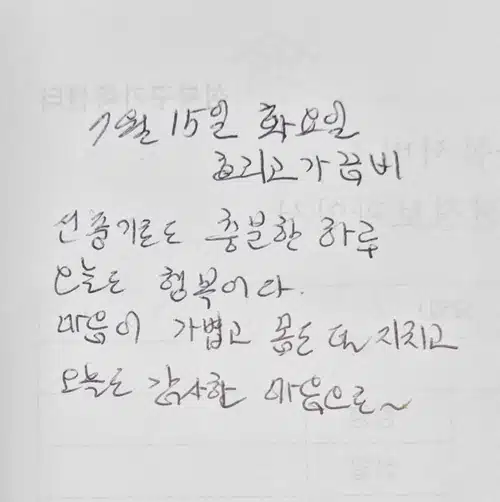 7월 15일 화요일
흐리고 가끔 비
선풍기로도 충분한 하루
오늘도 행복이다.
마음이 가볍고 몸도 덜 지치고
오늘도 감사한 마음으로~